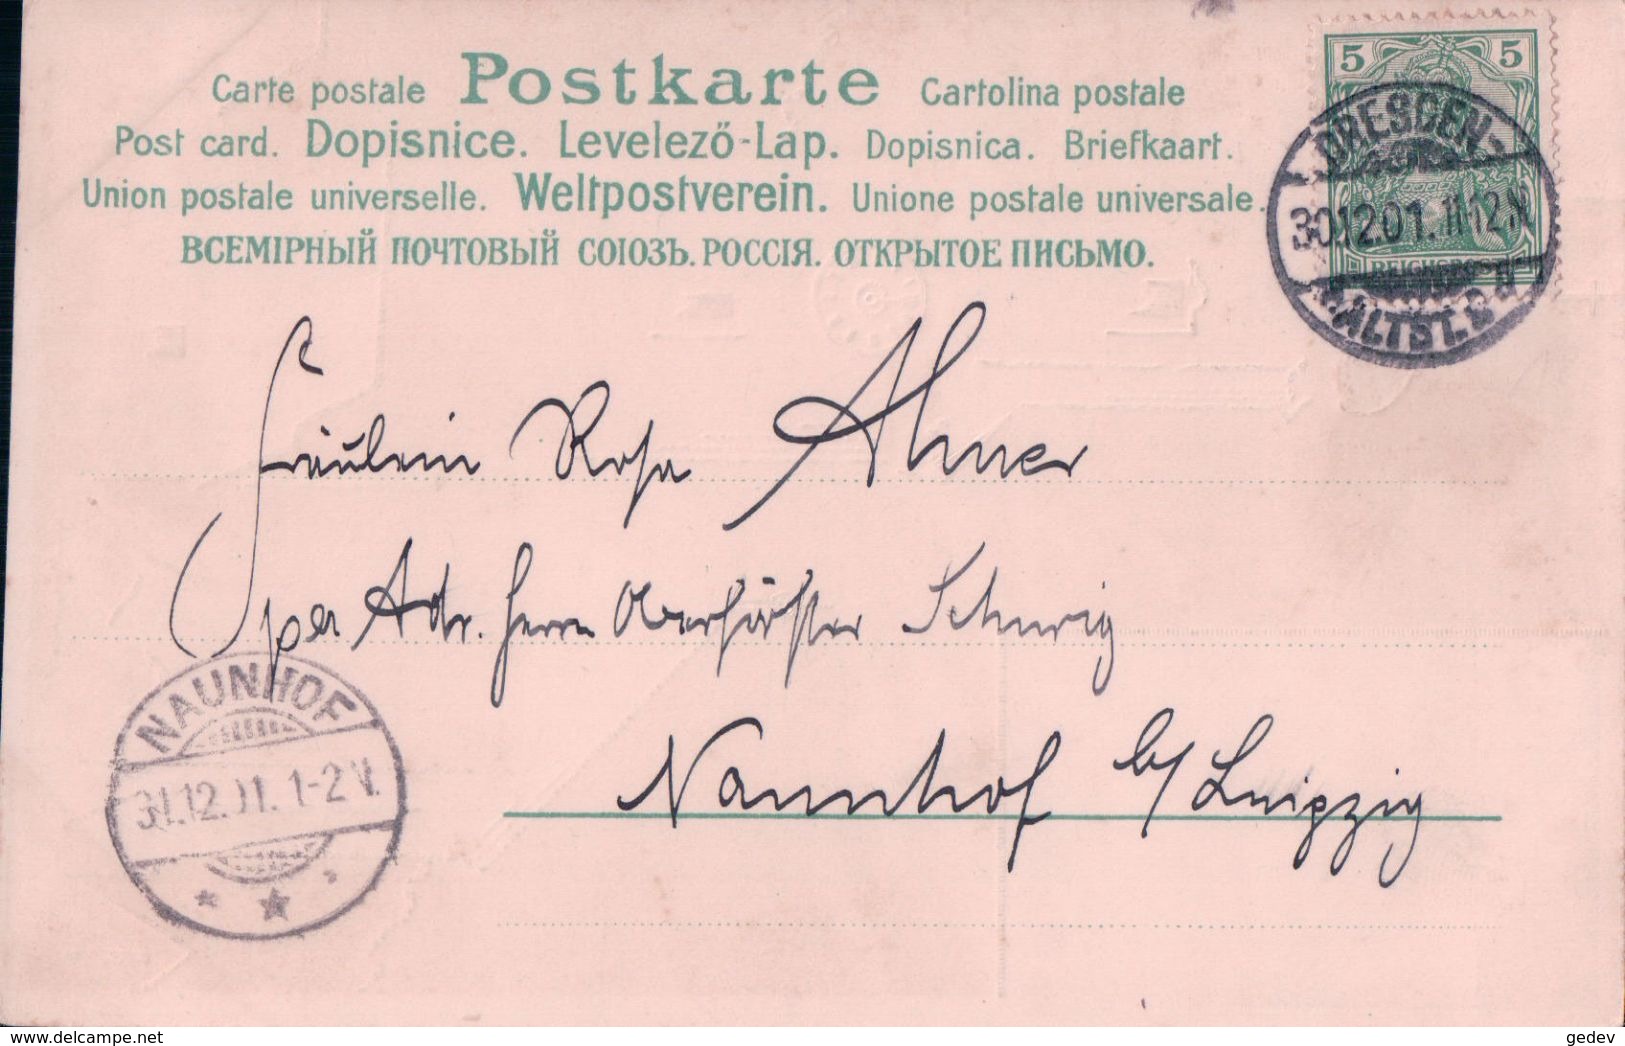 Carte postale Postkarte Cartolina postale
Post card. Dopisnice. Levelező-Lap. Dopisnica. Briefkaart.
Union postale universelle. Weltpostverein. Unione postale universale.
ВСЕМІРНЫЙ ПОЧТОВЫЙ СОЮЗЪ. РОССІЯ. ОТКРЫТОЕ ПИСЬМО.
5 5
DRESDEN-
30.12.01. 11-12.N
ALTST.
Fräulein Rosa Ahner
per Adr. Herrn Oberförster Schurig
Naunhof b/ Leipzig
NAUNHOF
31.12.01. 1-2 V.
www.delcampe.net
gedev